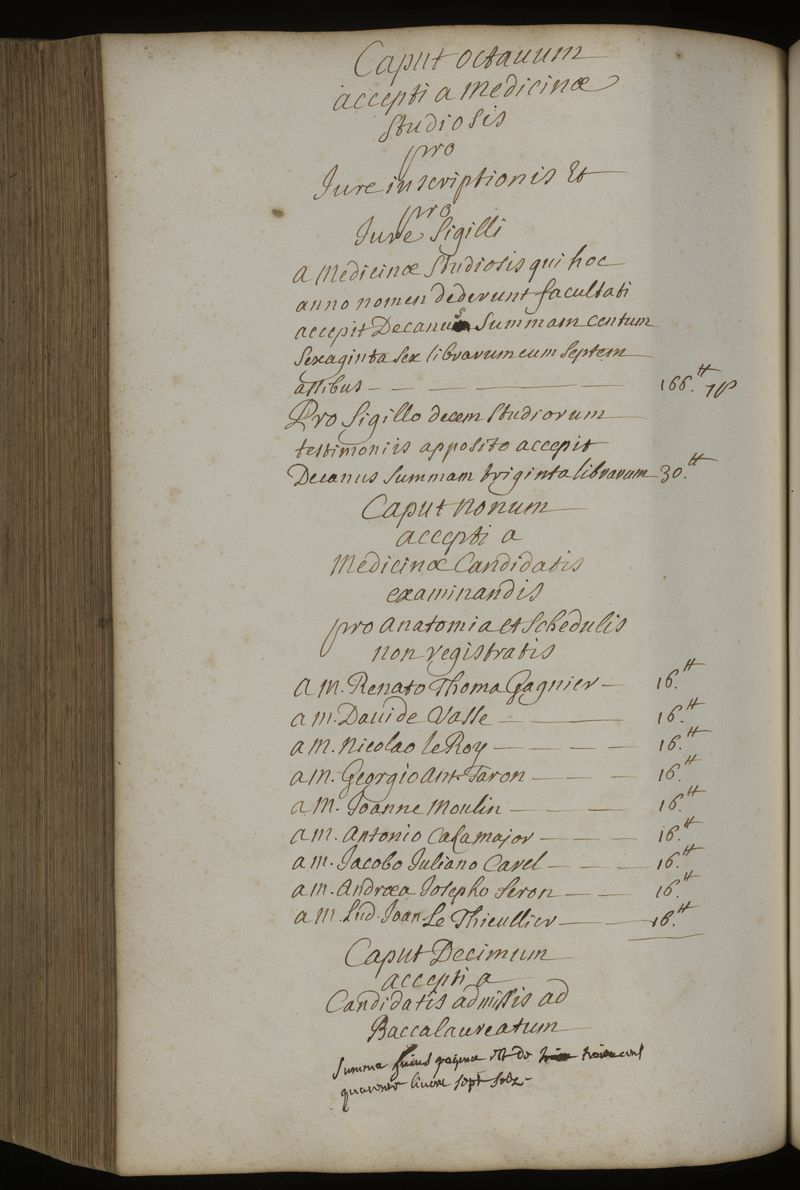 Caput octauum
accepti a medicinæ
studiosis
pro
Jure inscriptionis Et
pro
Jure Sigilli
a Medicinæ Studiosis qui hoc
anno nomen dederunt facultati
accepit Decanus Summam centum
sexaginta sex librarum cum septem
assibus — — — — — 166.tt 7ſ
Pro Sigillo decem studiorum
testimoniis apposito accepit
Decanus summam triginta librarum 30.tt
Caput nonum
accepti a
Medicinæ Candidatis
examinandis
pro anatomia et schedulis
non registratis
a M. Renato Thoma Gagnier — 16.tt
a m. Dauide Vasse — — — 16.tt
a M. Nicolao le Roy — — — — 16.tt
a M. Georgio Ant. Taron — — — 16.tt
a M. Joanne Moulin — — — 16.tt
a m. Antonio Casamajor — — — 16.tt
a m. Jacobo Juliano Carel — — — 16.tt
a m. Andræa Josepho Seron — — 16.tt
a M. Lud. Joan Le Thieullier — — 16.tt
Caput Decimum
accepti a
Candidatis admissis ad
Baccalaureatum
Summa huius paginæ est de trois cent
quarente livres sept solz